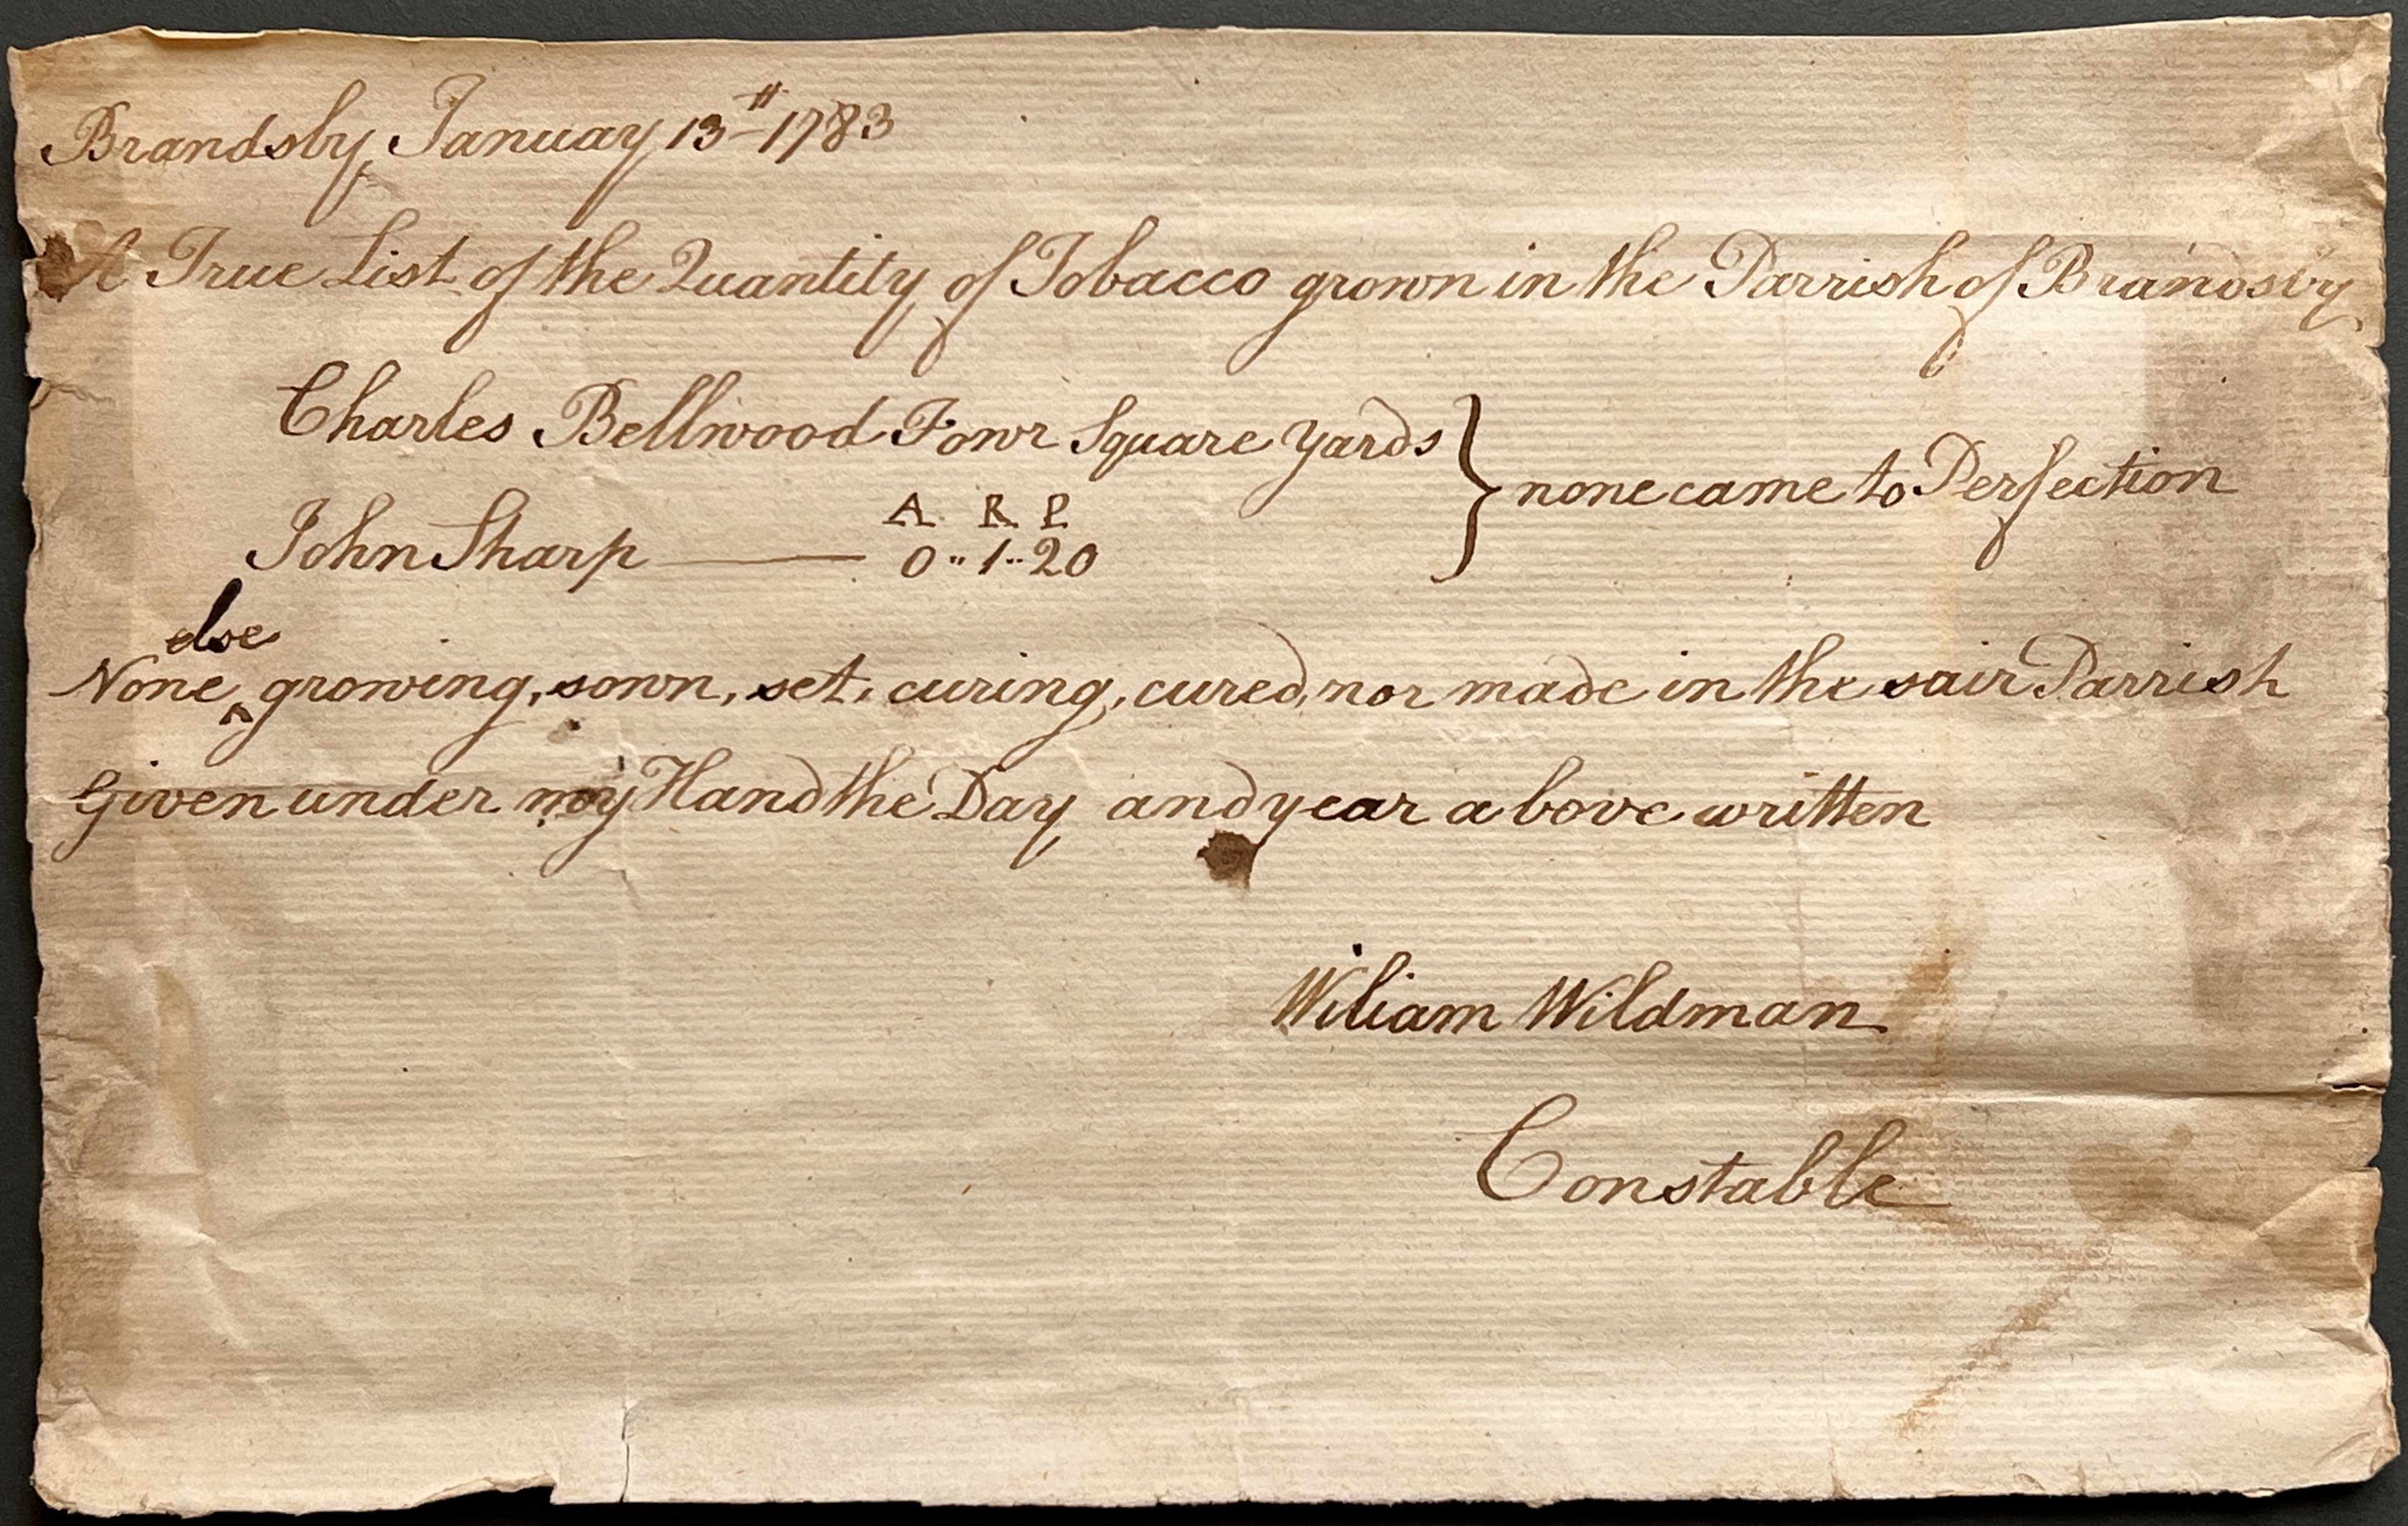 Brandsby January 13th 1783
A True List of the Quantity of Tobacco grown in the Parrish of Brandsby
Charles Bellwood Fowr Square yards } none came to Perfection
A R P
John Sharp —— 0 .. 1 .. 20
else
None ^ growing, sown, set, curing, cured, nor made in the sair Parrish
Given under my Hand the Day and year above written
Wiliam Wildman
Constable